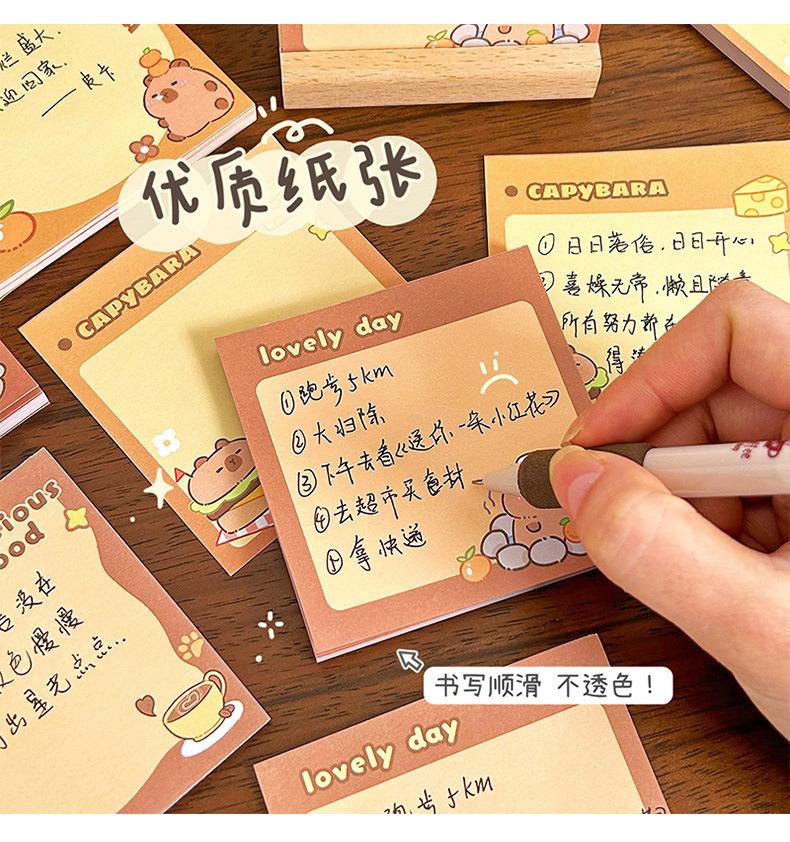 烂盛大,
迎回家.
——皮卡
优质纸张
CAPYBARA
① 日日落俗,日日开心
喜燥无常,懒且随
所有努力都在
得
CAPYBARA
lovely day
①跑步5km
②大扫除
③下午去看《送你一朵小红花》
④去超市买食材
⑤拿快递
rious
ood
没在
色慢慢
出星光点点...
书写顺滑 不透色!
lovely day
跑步5km